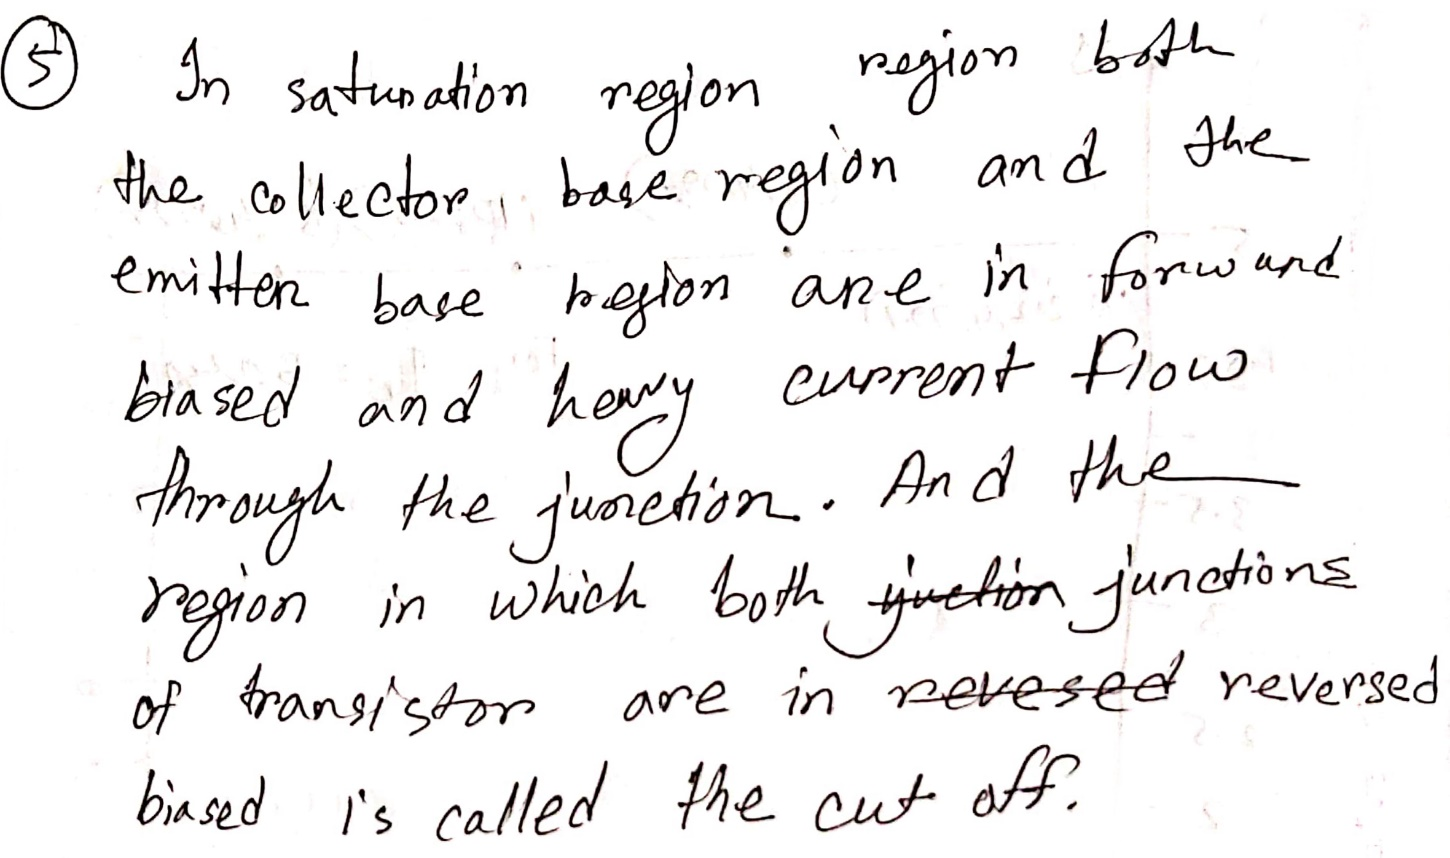 5 In saturation region region both
the collector, base region and the
emitter base region are in forward
biased and heavy current flow
through the junction. And the
region in which both juction junctions
of transistor are in revesed reversed
biased is called the cut off.